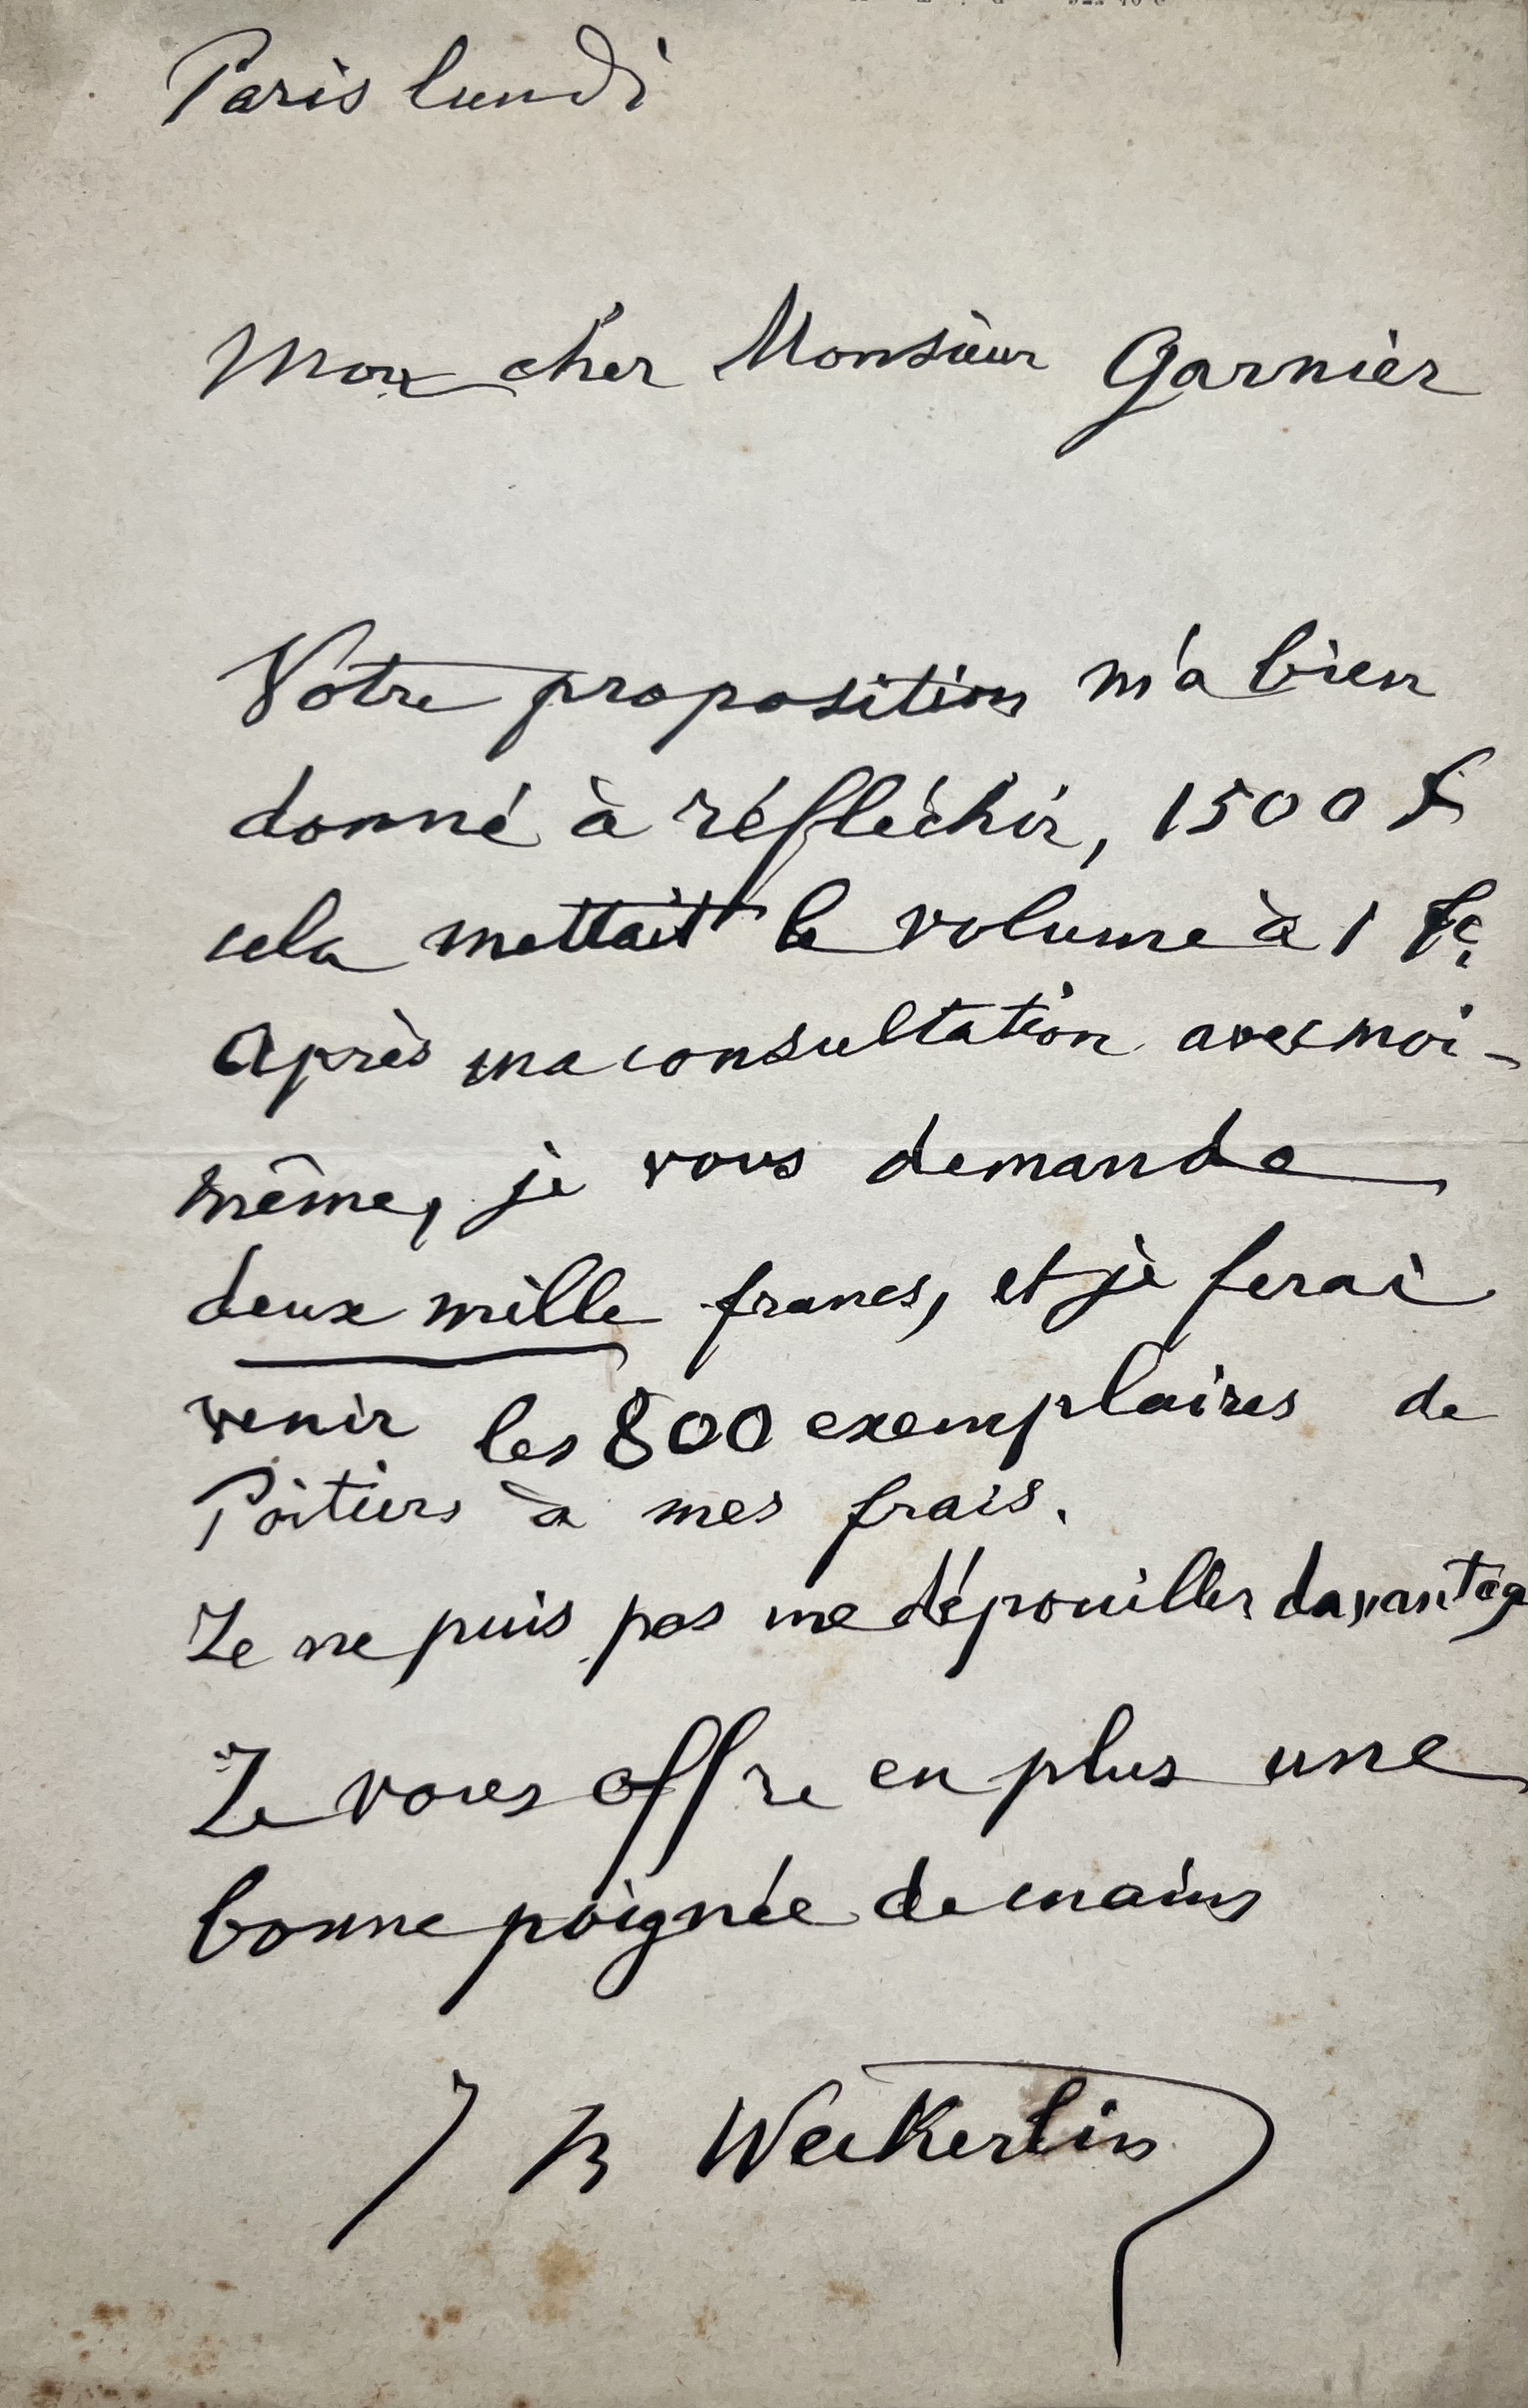 Paris lundi
Mon cher Monsieur Garnier
Votre proposition m'a bien
donné à réfléchir, 1500 f
cela mettait le volume à 1 fc,
Après ma consultation avec moi-
même, je vous demande
deux mille francs, et je ferai
venir les 800 exemplaires de
Poitiers à mes frais.
Je ne puis pas me dépouiller davantag
Je vous offre en plus une
bonne poignée de mains
J B Weckerlin